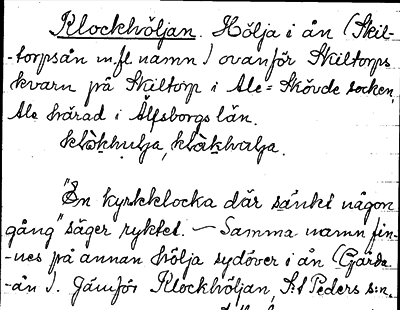 Klockhöljan. Hölja i ån (Skil-
-torpsån m.fl. namn) ovanför Skiltorps
kvarn på Skiltorp i Ale-Skövde socken,
Ale härad i Älfsborgs län.
klåkhulja, klåkhalja.
"En kyrkklocka där sänkt någon
gång" säger ryktet. — Samma namn fin-
-nes på annan hölja sydöver i ån (Gärda
-ån). Jämför Klockhöljan, St Peders s:n,